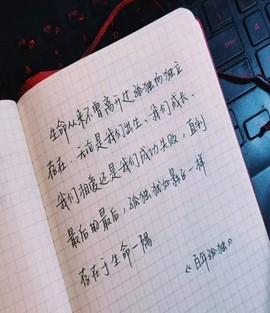 生命从来不曾离开过孤独而独立
存在。无论是我们出生、我们成长、
我们相爱还是我们成功失败，直到
最后的最后，孤独犹如影子一样
存在于生命一隅
《百年孤独》